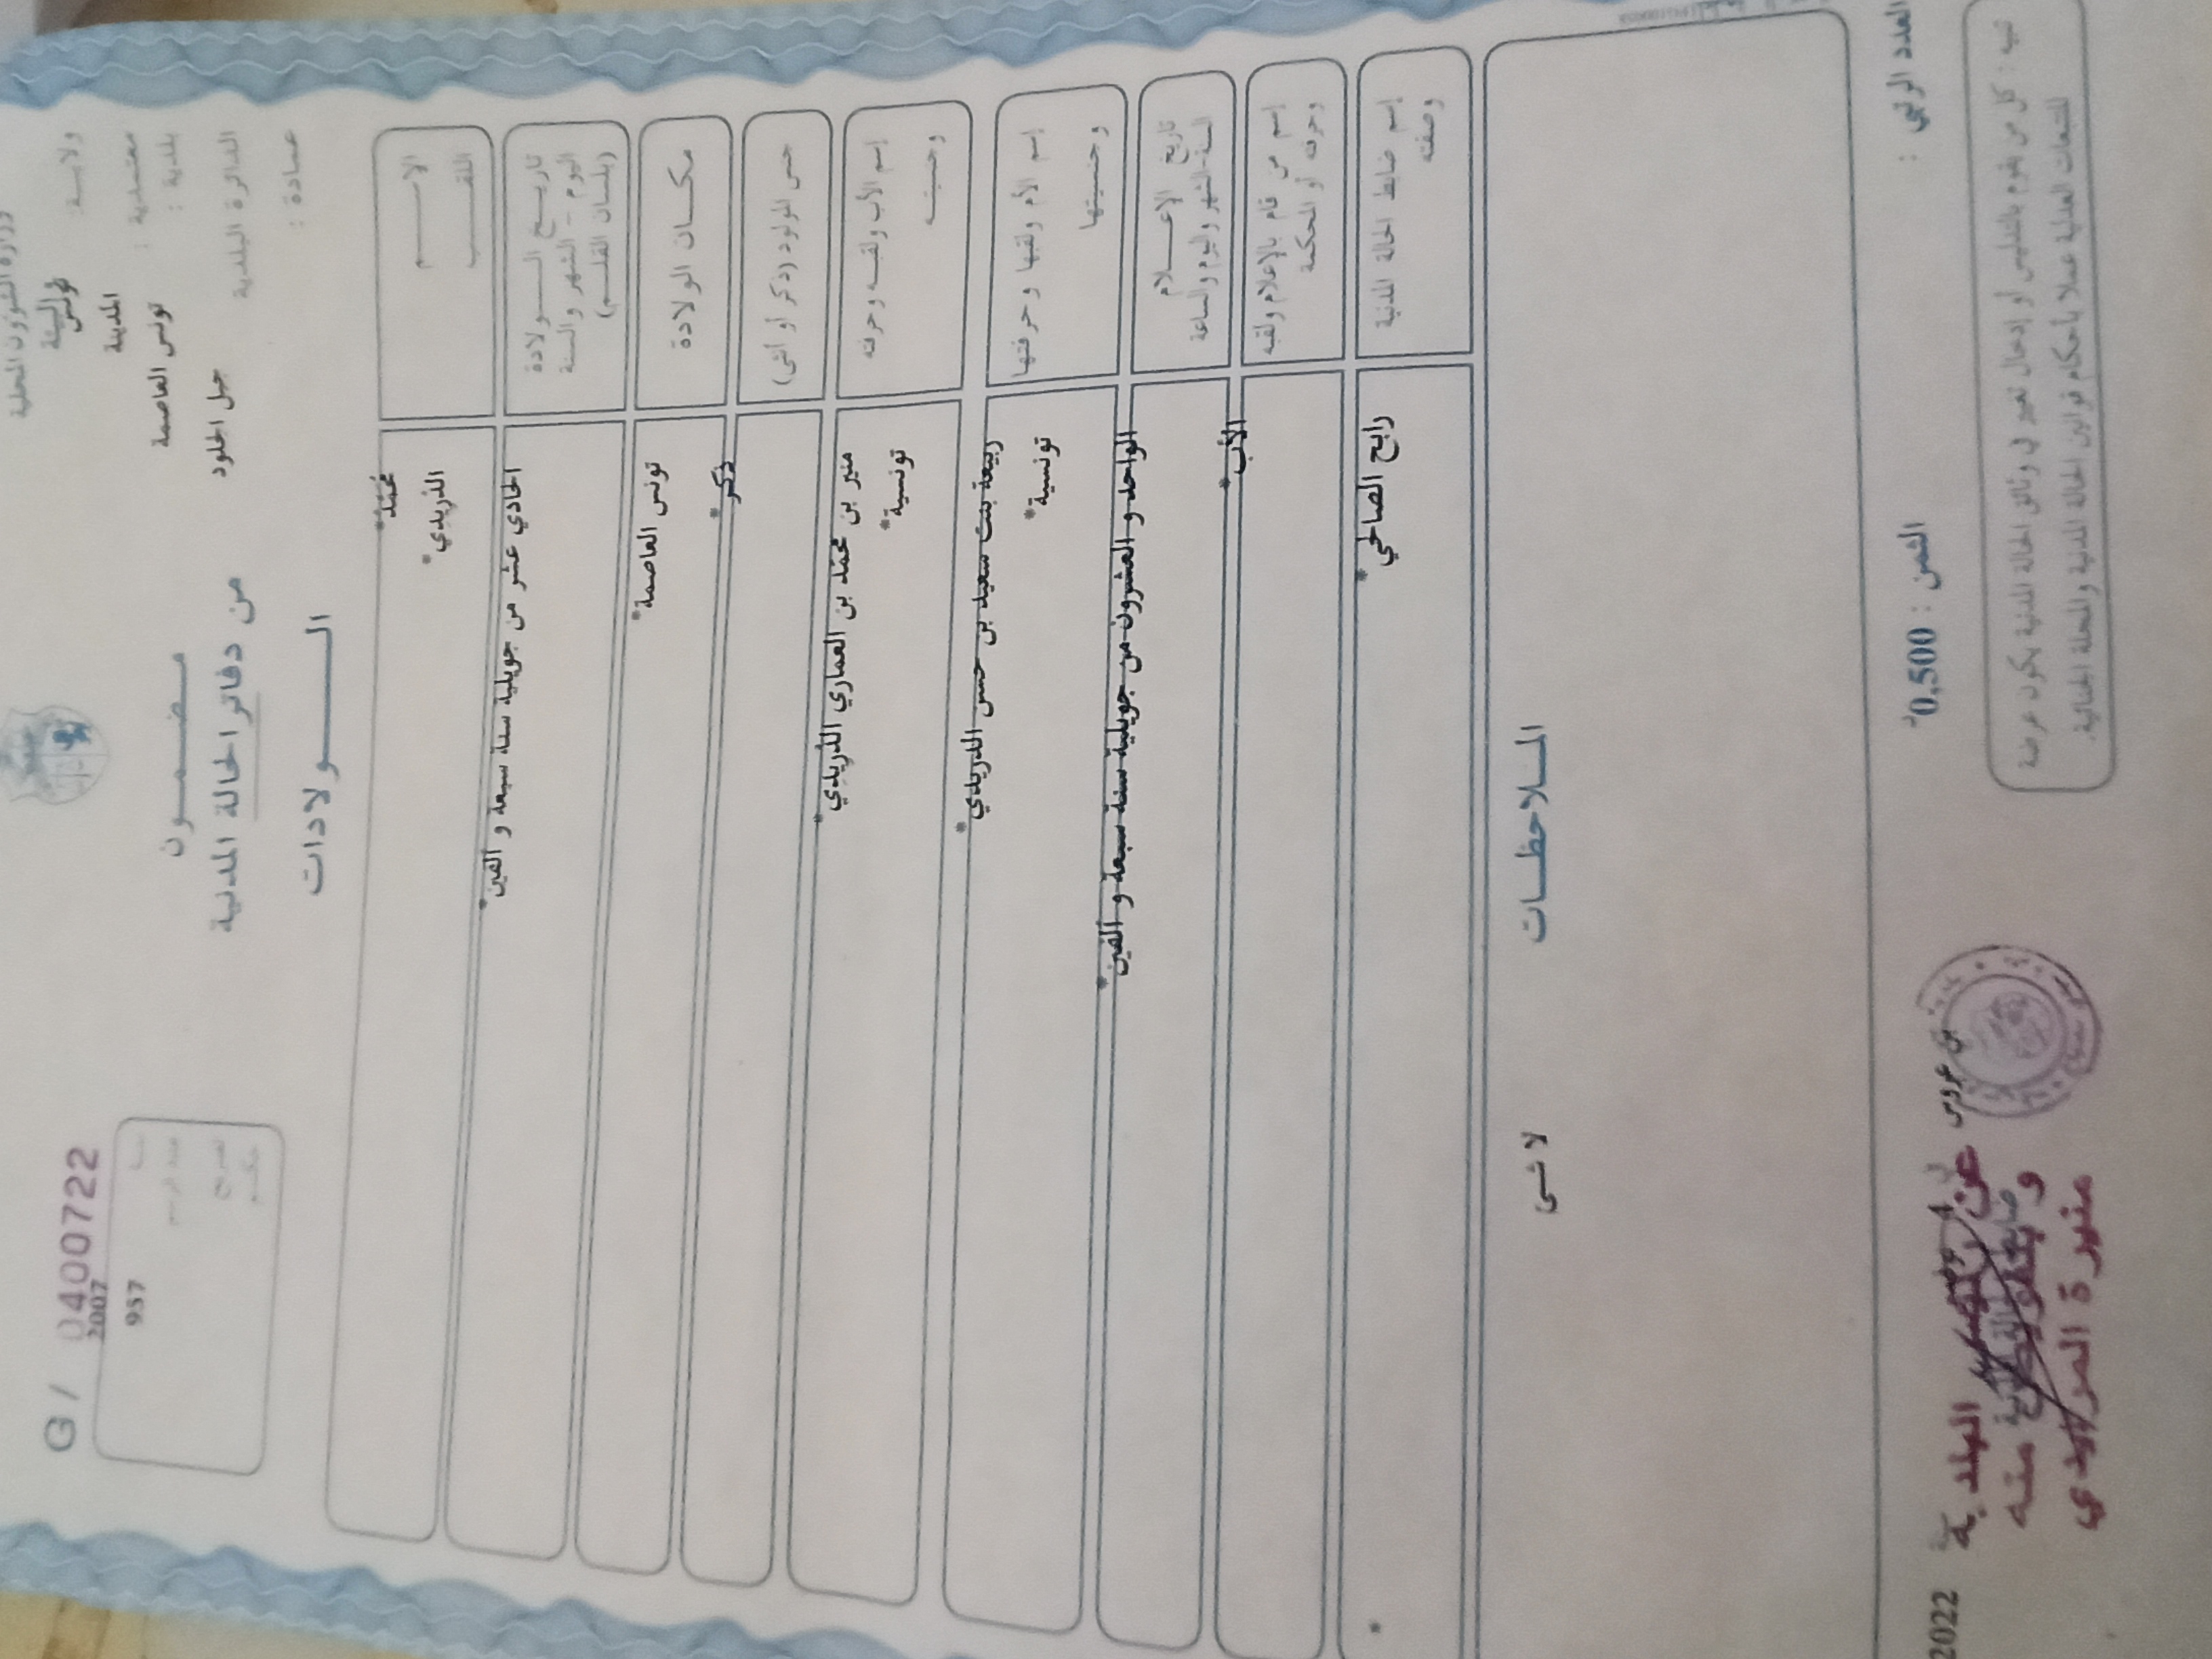 وزارة الشؤون المحلية
والبيئة
ولايــة: تونس
معتمدية : المدينة
بلدية : تونس العاصمة
الدائرة البلدية جبل الجلود
عمـادة :
مضـمـــون
من دفاتر الحالة المدنية
الـــــولادات
G / 0400722
2007
957
الاســـــم محمّد*
اللقـــــب الدّريدي*
تاريـــخ الــــولادة
اليوم - الشهر والسنة
(بلسان القلــم)
الحادي عشر من جويلية سنة سبعة و الفين*
مكـــان الولادة
تونس العاصمة*
جنس المولود (ذكر أو أنثى)
ذكر*
إسم الأب ولقبـه وحرفته
وجنسيتـه
منير بن محمّد بن العماري الدّريدي*
تونسية*
إسم الأم ولقبها وحرفتها
وجنسيتها
ربيعة بنت سعيد بن حسن الدريدي*
تونسية*
تاريخ الإعـــلام
السنة-الشهر واليوم والساعة
الواحد و العشرون من جويلية سنة سبعة و الفين*
إسم من قام بالإعلام ولقبه
وحرفته أو المحكمة
الأب*
إسم ضابط الحالة المدنية
وصفته
رابح الصالحي*
*
المـلاحظــات
لا شـى
العدد الرتبي :
الثمن : 0,500د
بن عروس في
2022
عن رئيس البلدية
و بتفويض منه
منيرة المولدي
تنبيه : كل من يقوم بالتدليس أو إدخال تغيير في وثائق الحالة المدنية يكون عرضة
للتتبعات العدلية عملا بأحكام قوانين الحالة المدنية والمجلة الجنائية.